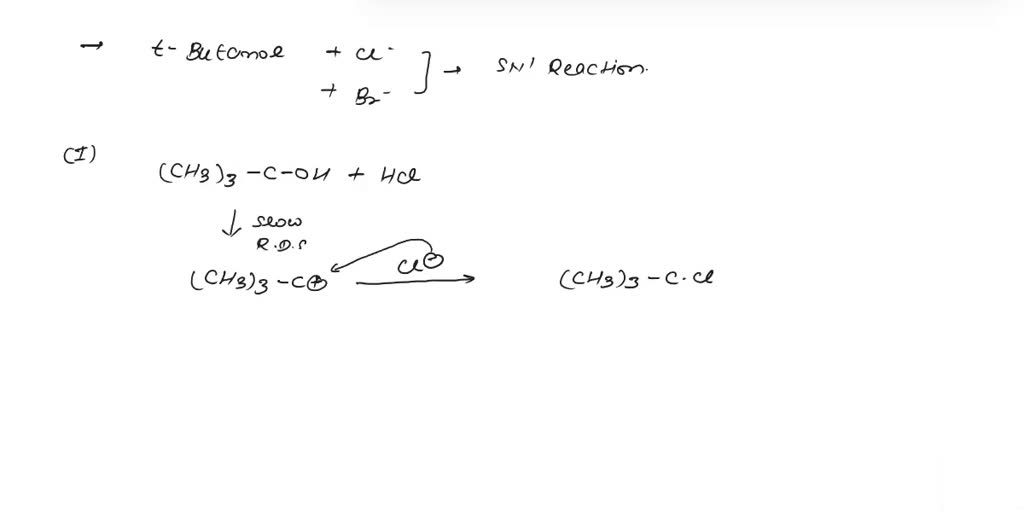 → t-Butanol + Cl⁻
+ Br⁻ ] → SN¹ Reaction.
(I)
(CH3)3 -C-OH + HCl
↓ slow
R.D.S
(CH3)3 -C⊕ Cl⊖ → (CH3)3 -C-Cl